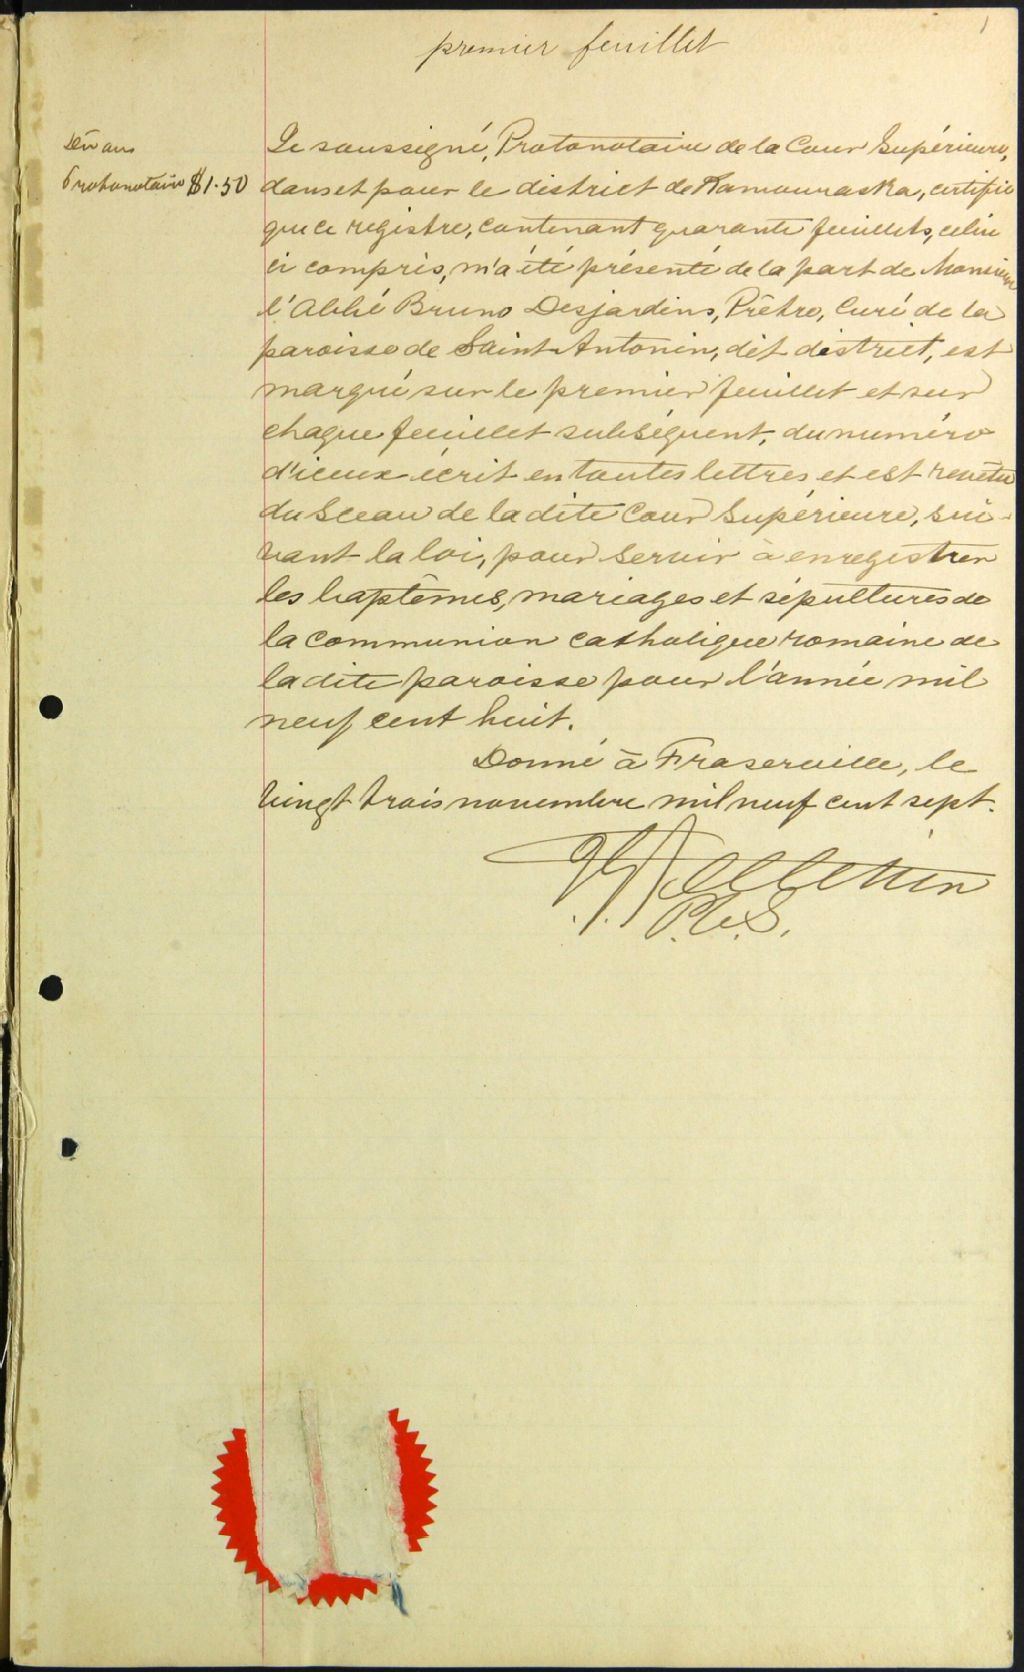 premier feuillet
1
Dû au
Protonotaire $1.50
Je soussigné, Protonotaire de la Cour Supérieure,
dans et pour le district de Kamouraska, certifie
que ce registre, contenant quarante feuillets, celui
ci compris, m'a été présenté de la part de Monsieur
l'Abbé Bruno Desjardins, Prêtre, Curé de la
paroisse de Saint-Antonin, dit district, est
marqué sur le premier feuillet et sur
chaque feuillet subséquent, du numéro
d'iceux écrit en toutes lettres et est revêtu
du Sceau de la dite Cour Supérieure, sui-
vant la loi, pour servir à enregistrer
les baptêmes, mariages et sépultures de
la communion catholique romaine de
la dite paroisse pour l'année mil
neuf cent huit.
Donné à Fraserville, le
vingt trois novembre mil neuf cent sept.
Pelletier
P.C.S.